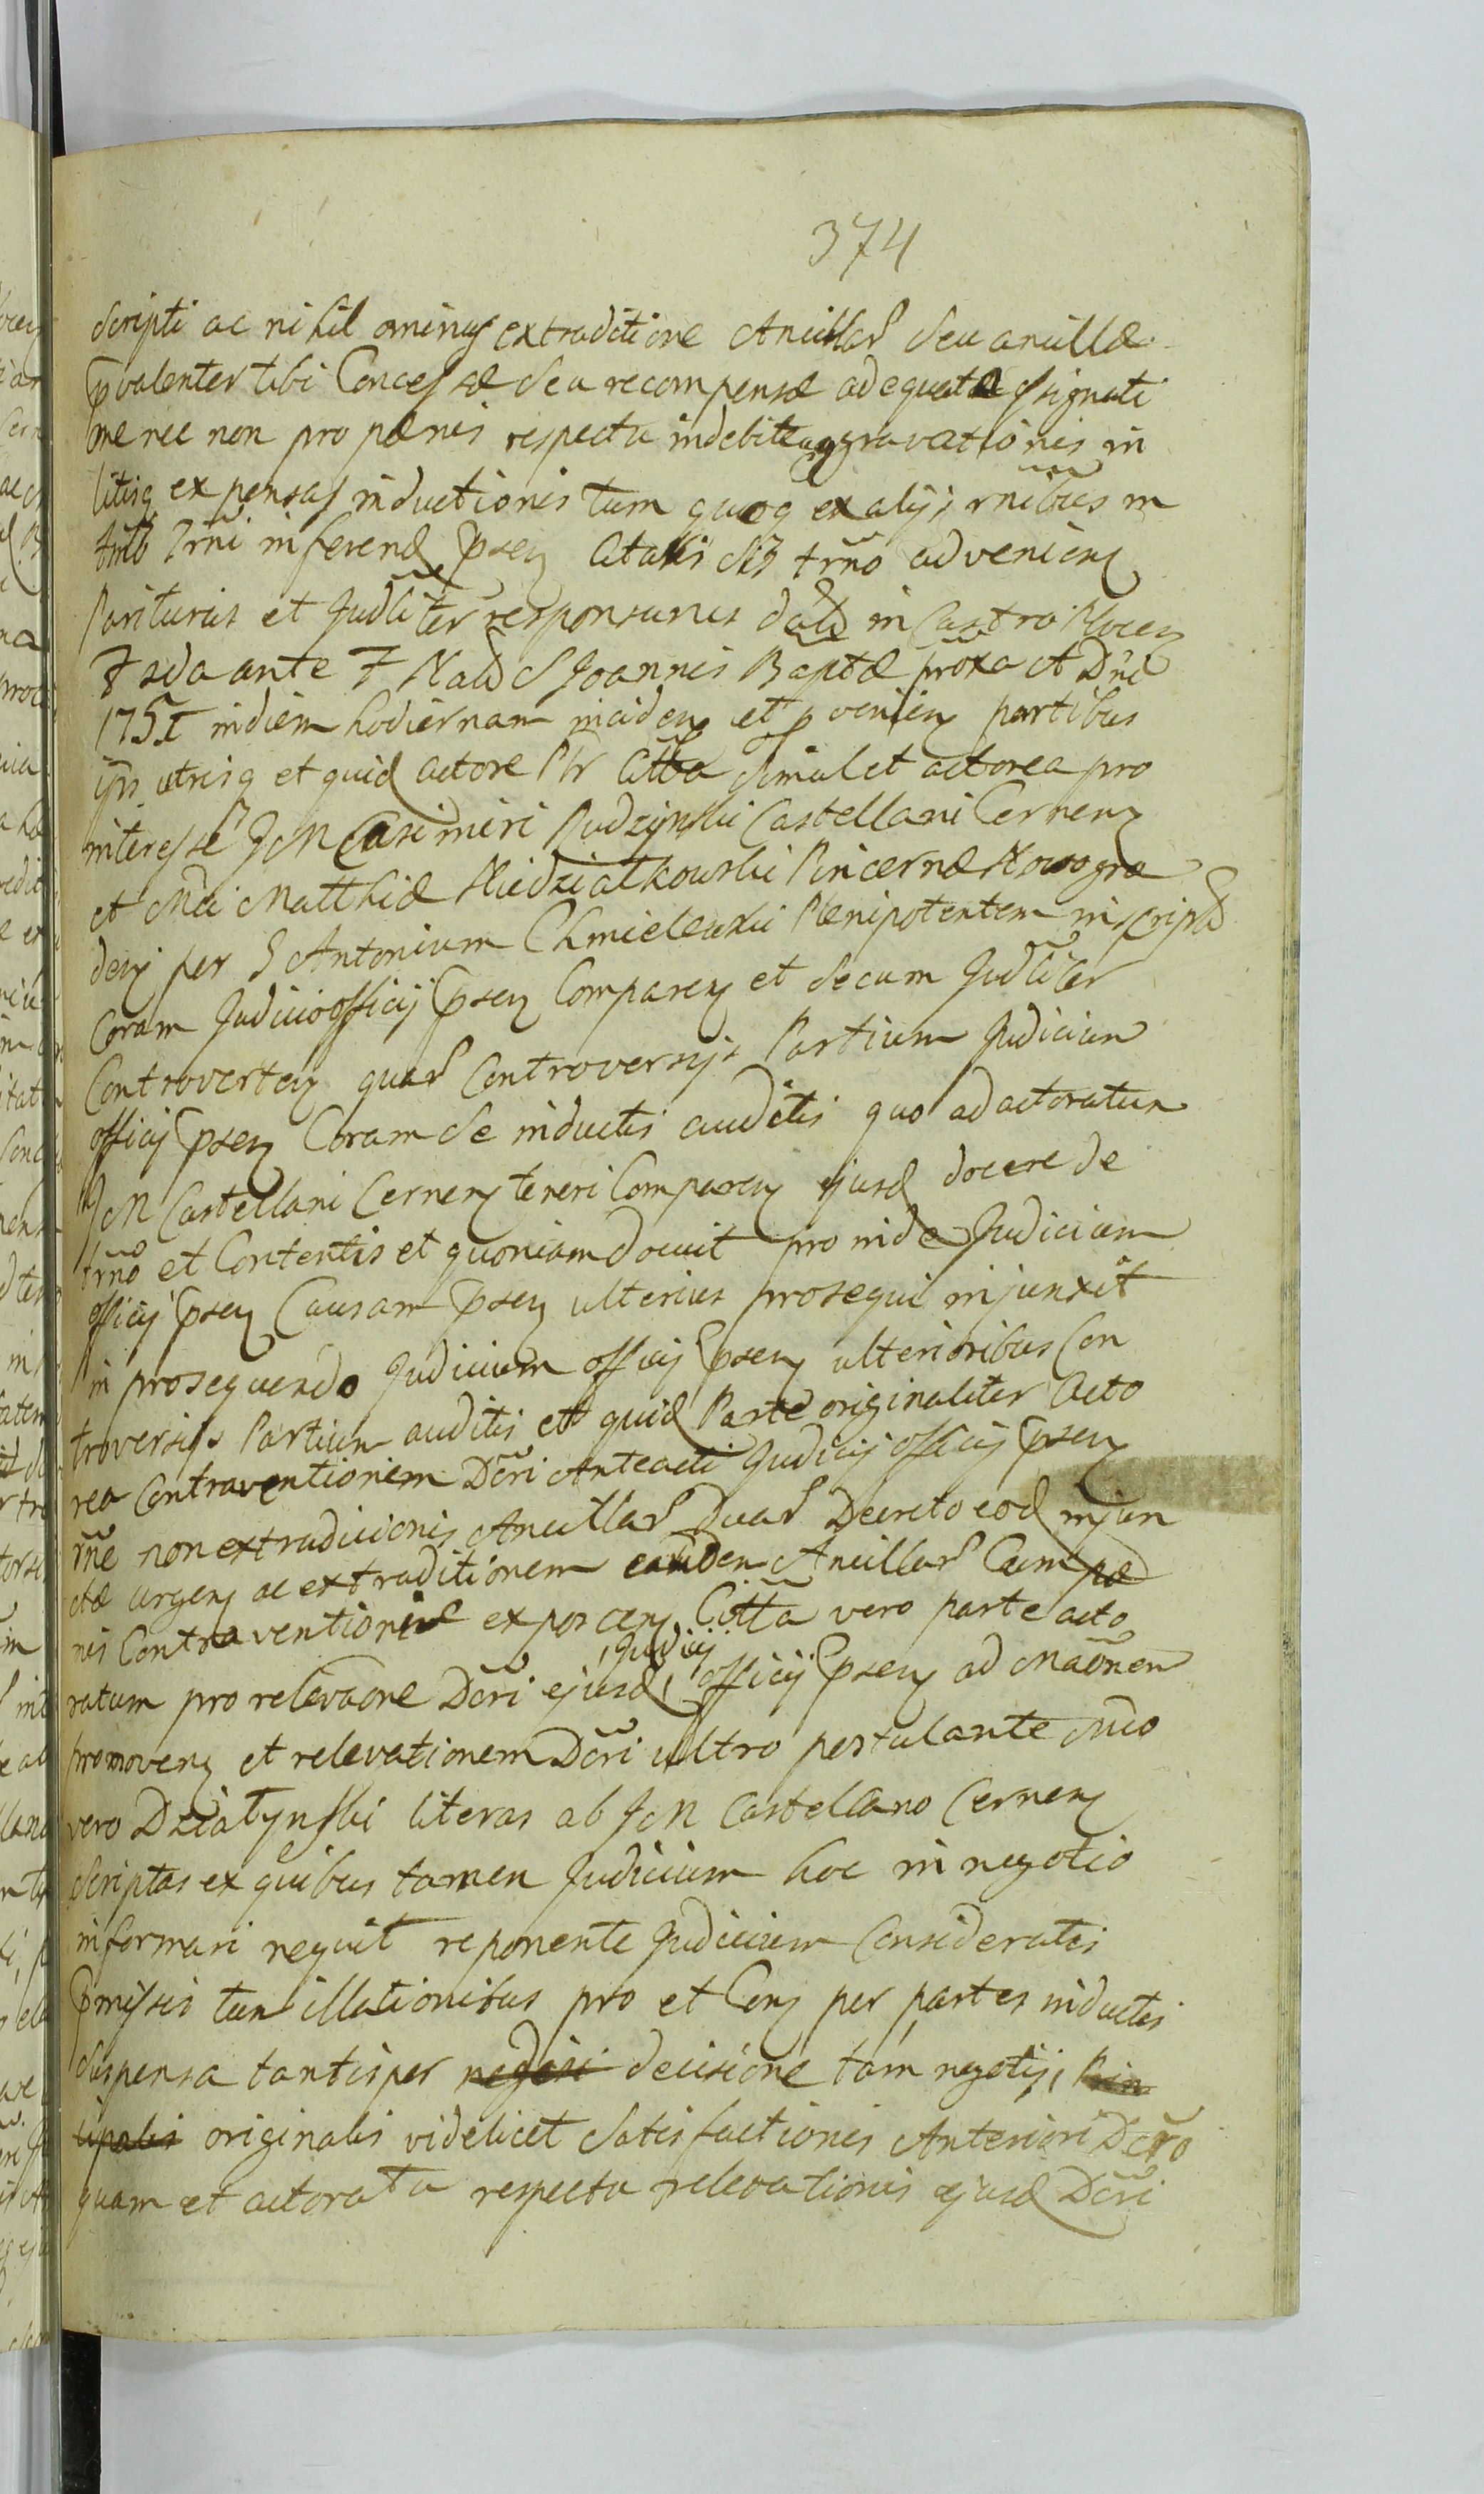 374
scripti ac nihil ominus extraditione Ancillar seu ancillæ
pvalenter tibi Concessæ seu recompensæ adequatæ assignati
one nec non pro pænis respectu indebitæ aggravationis in
litisq expensas inductionis tum quoq ex alijs rnibus in
Trni inferend pseq Citatis trno advenien
Parituris et Judliter responsuris datd in Castro Plocen
F 3da ante F Natd S Joannis Baptæ proxa A Dni
1751 in diem hodiernam inciden et pvenien partibus
ijs utrisq et quid actore Ptr Citta simul et actorea pro
interesse JM Casimiri Rudzinski Castellani Cernen
et Mci Matthiæ Niedzialkowski Pincernæ Nowogro
den per G Antonium Chmielewski Plenipotentem inscriptd
Coram Judicio officij psen Comparen et secum Judliter
Controverten quar Controversijs Partium Judicium
officij psen Coram se inductis auditis quo ad actoratum
JM Castellani Cernen teneri Comparen ejusd docere de
trno et Contentis et quoniam docuit pro inde Judicium
officij psen Causam psen ulterius prosequi injunxit
in prosequendo Judicium officij psen ulterioribus Con
troversijs Partium auditis et quid Parte originaliter Acto
rea Contraventionem Dcri Anteacti Judicij officij psen
rne non extradicionis Ancillar Duar Decreto eod injun
ctæ urgen ac extraditionem earuden Ancillar Cum pæ
nis Contraventionis exposcen Citta vero parte acto
ratum pro relevaone Dcri ejusd Judicij officij psen ad Maonem
promoven et relevationem Dcri ultro postulante Mco
vero Dziatynski literas ab JM Castellano Cernen
scriptas ex quibus tamen Judicium hoc in negotio
informari nequit reponente Judicium Consideratis
pmissis tum illationibus pro et Con per partes inductis
suspensa tantisper negosi decisione tam negotij, Prin
cipalis originalis videlicet satisfactionis Anteriori Dcro
quam et actoratu respectu relevationis ejusd Dcri